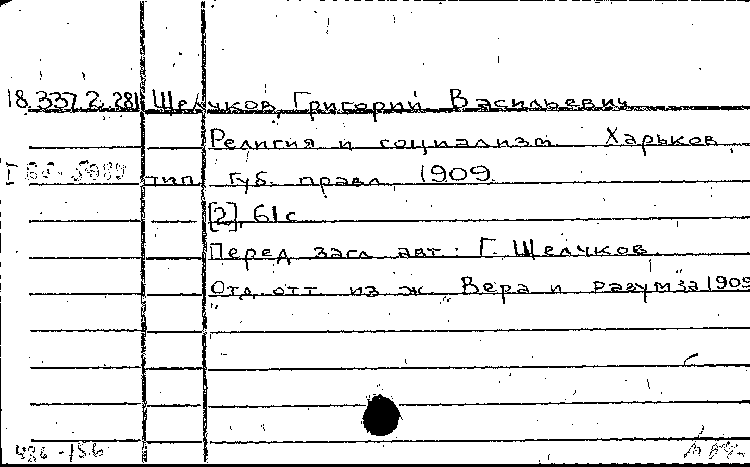 18.337.2.281 Щелчков, Григорий Васильевич
Религия и социализм. Харьков,
тип. Губ. правл., 1909.
[2], 61 с.
Перед загл. авт.: Г. Щелчков.
Отд. отт. из ж. "Вера и разум" за 1909
486-156